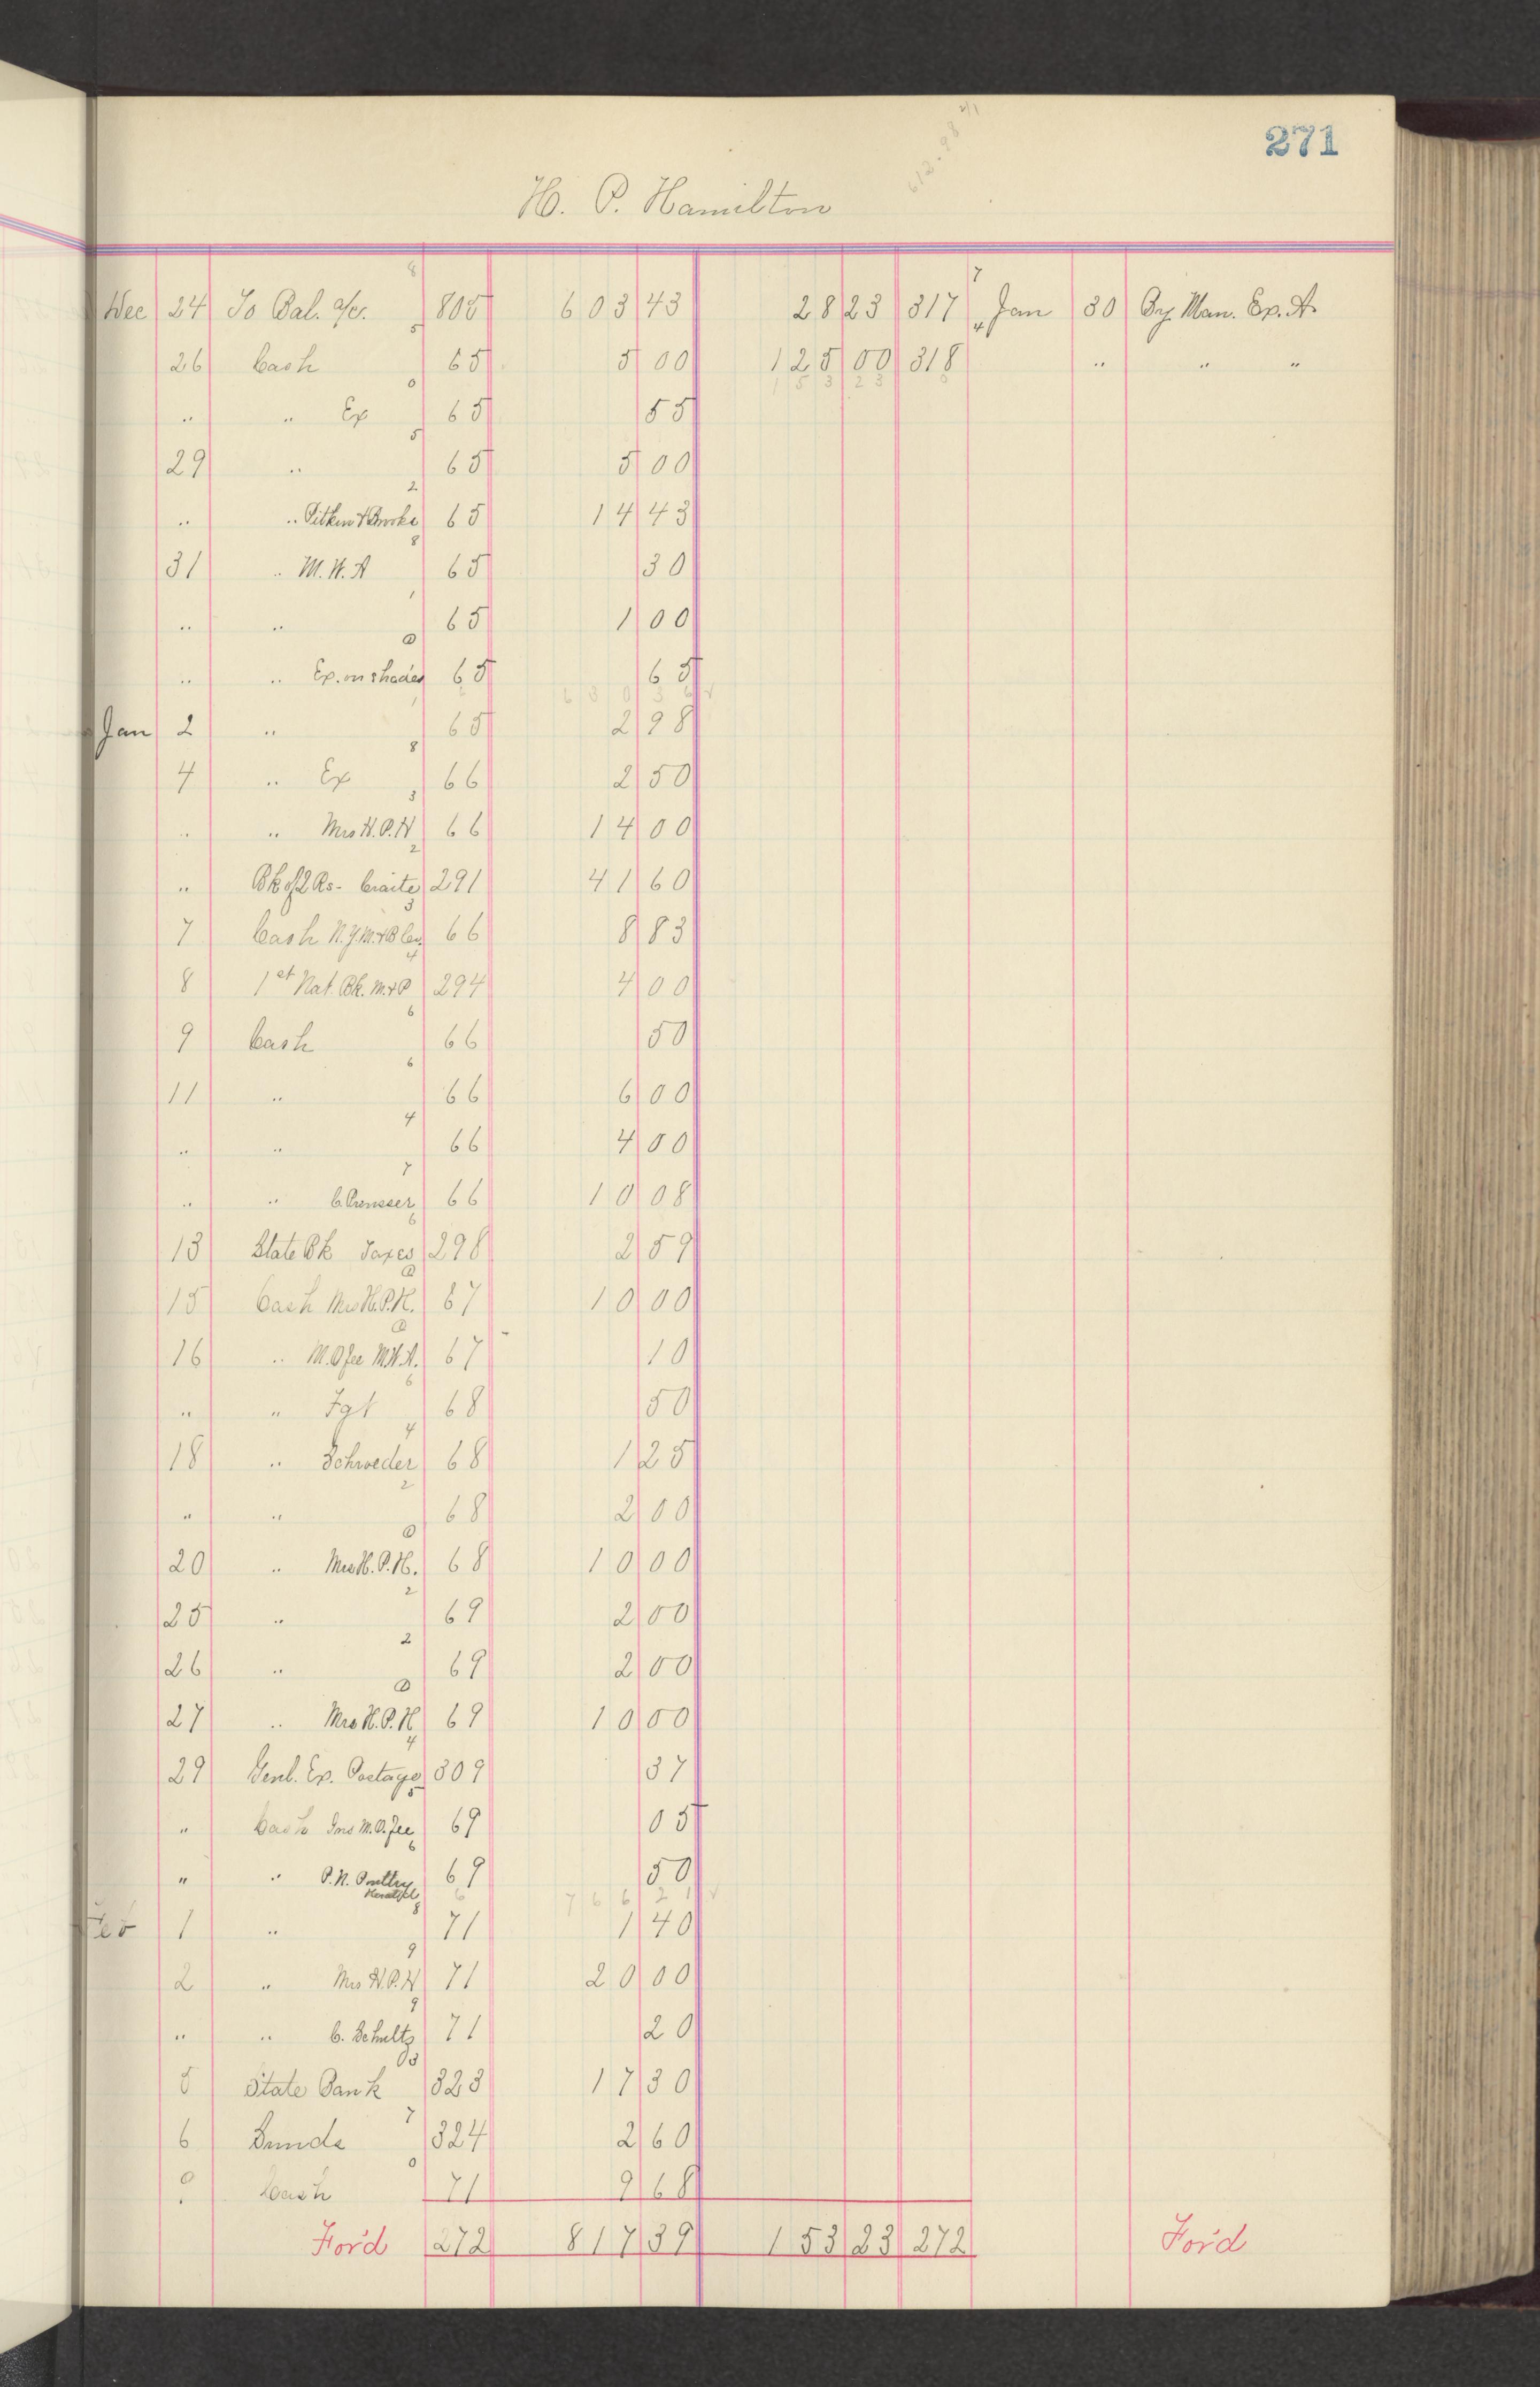 271
612.98 2/1
H. P. Hamilton
Dec 24 To Bal. a/c. 805 603 43 28 23 317 Jan 30 By Man. Ex. A
26 Cash 65 5 00 125 00 318 " " "
" " Ex 65 55 153 23
29 " 65 5 00
" " Pitkin & Brooks 65 14 43
31 " M.W.A 65 30
" " 65 1 00
" " Ex. on shades 65 65
630 36
Jan 2 " 65 2 98
4 " Ex 66 2 50
" " Mrs H.P.H 66 14 00
" Bk of 2 Rs - Craite 291 41 60
7 Cash N.Y.M.&B Co 66 8 83
8 1st Nat. Bk. M.&P 294 4 00
9 Cash 66 50
11 " 66 6 00
" " 66 4 00
" " C. Prensser 66 10 08
13 State Bk Taxes 298 2 59
15 Cash Mrs H.P.H. 67 10 00
16 " M.O fee M.W.A. 67 10
" " Fgt 68 50
18 " Schroeder 68 1 25
" " 68 2 00
20 " Mrs H.P.H. 68 10 00
25 " 69 2 00
26 " 69 2 00
27 " Mrs H.P.H 69 10 00
29 Genl. Ex. Postage 309 37
" Cash Ins M.O. fee 69 05
" " P.N. Poultry 69 50
766 21
Feb 1 " 71 1 40
2 " Mrs H.P.H 71 20 00
" " C. Schultz 71 20
5 State Bank 323 17 30
6 Sunds 324 2 60
Cash 71 9 68
Ford 272 817 39 153 23 272 Ford